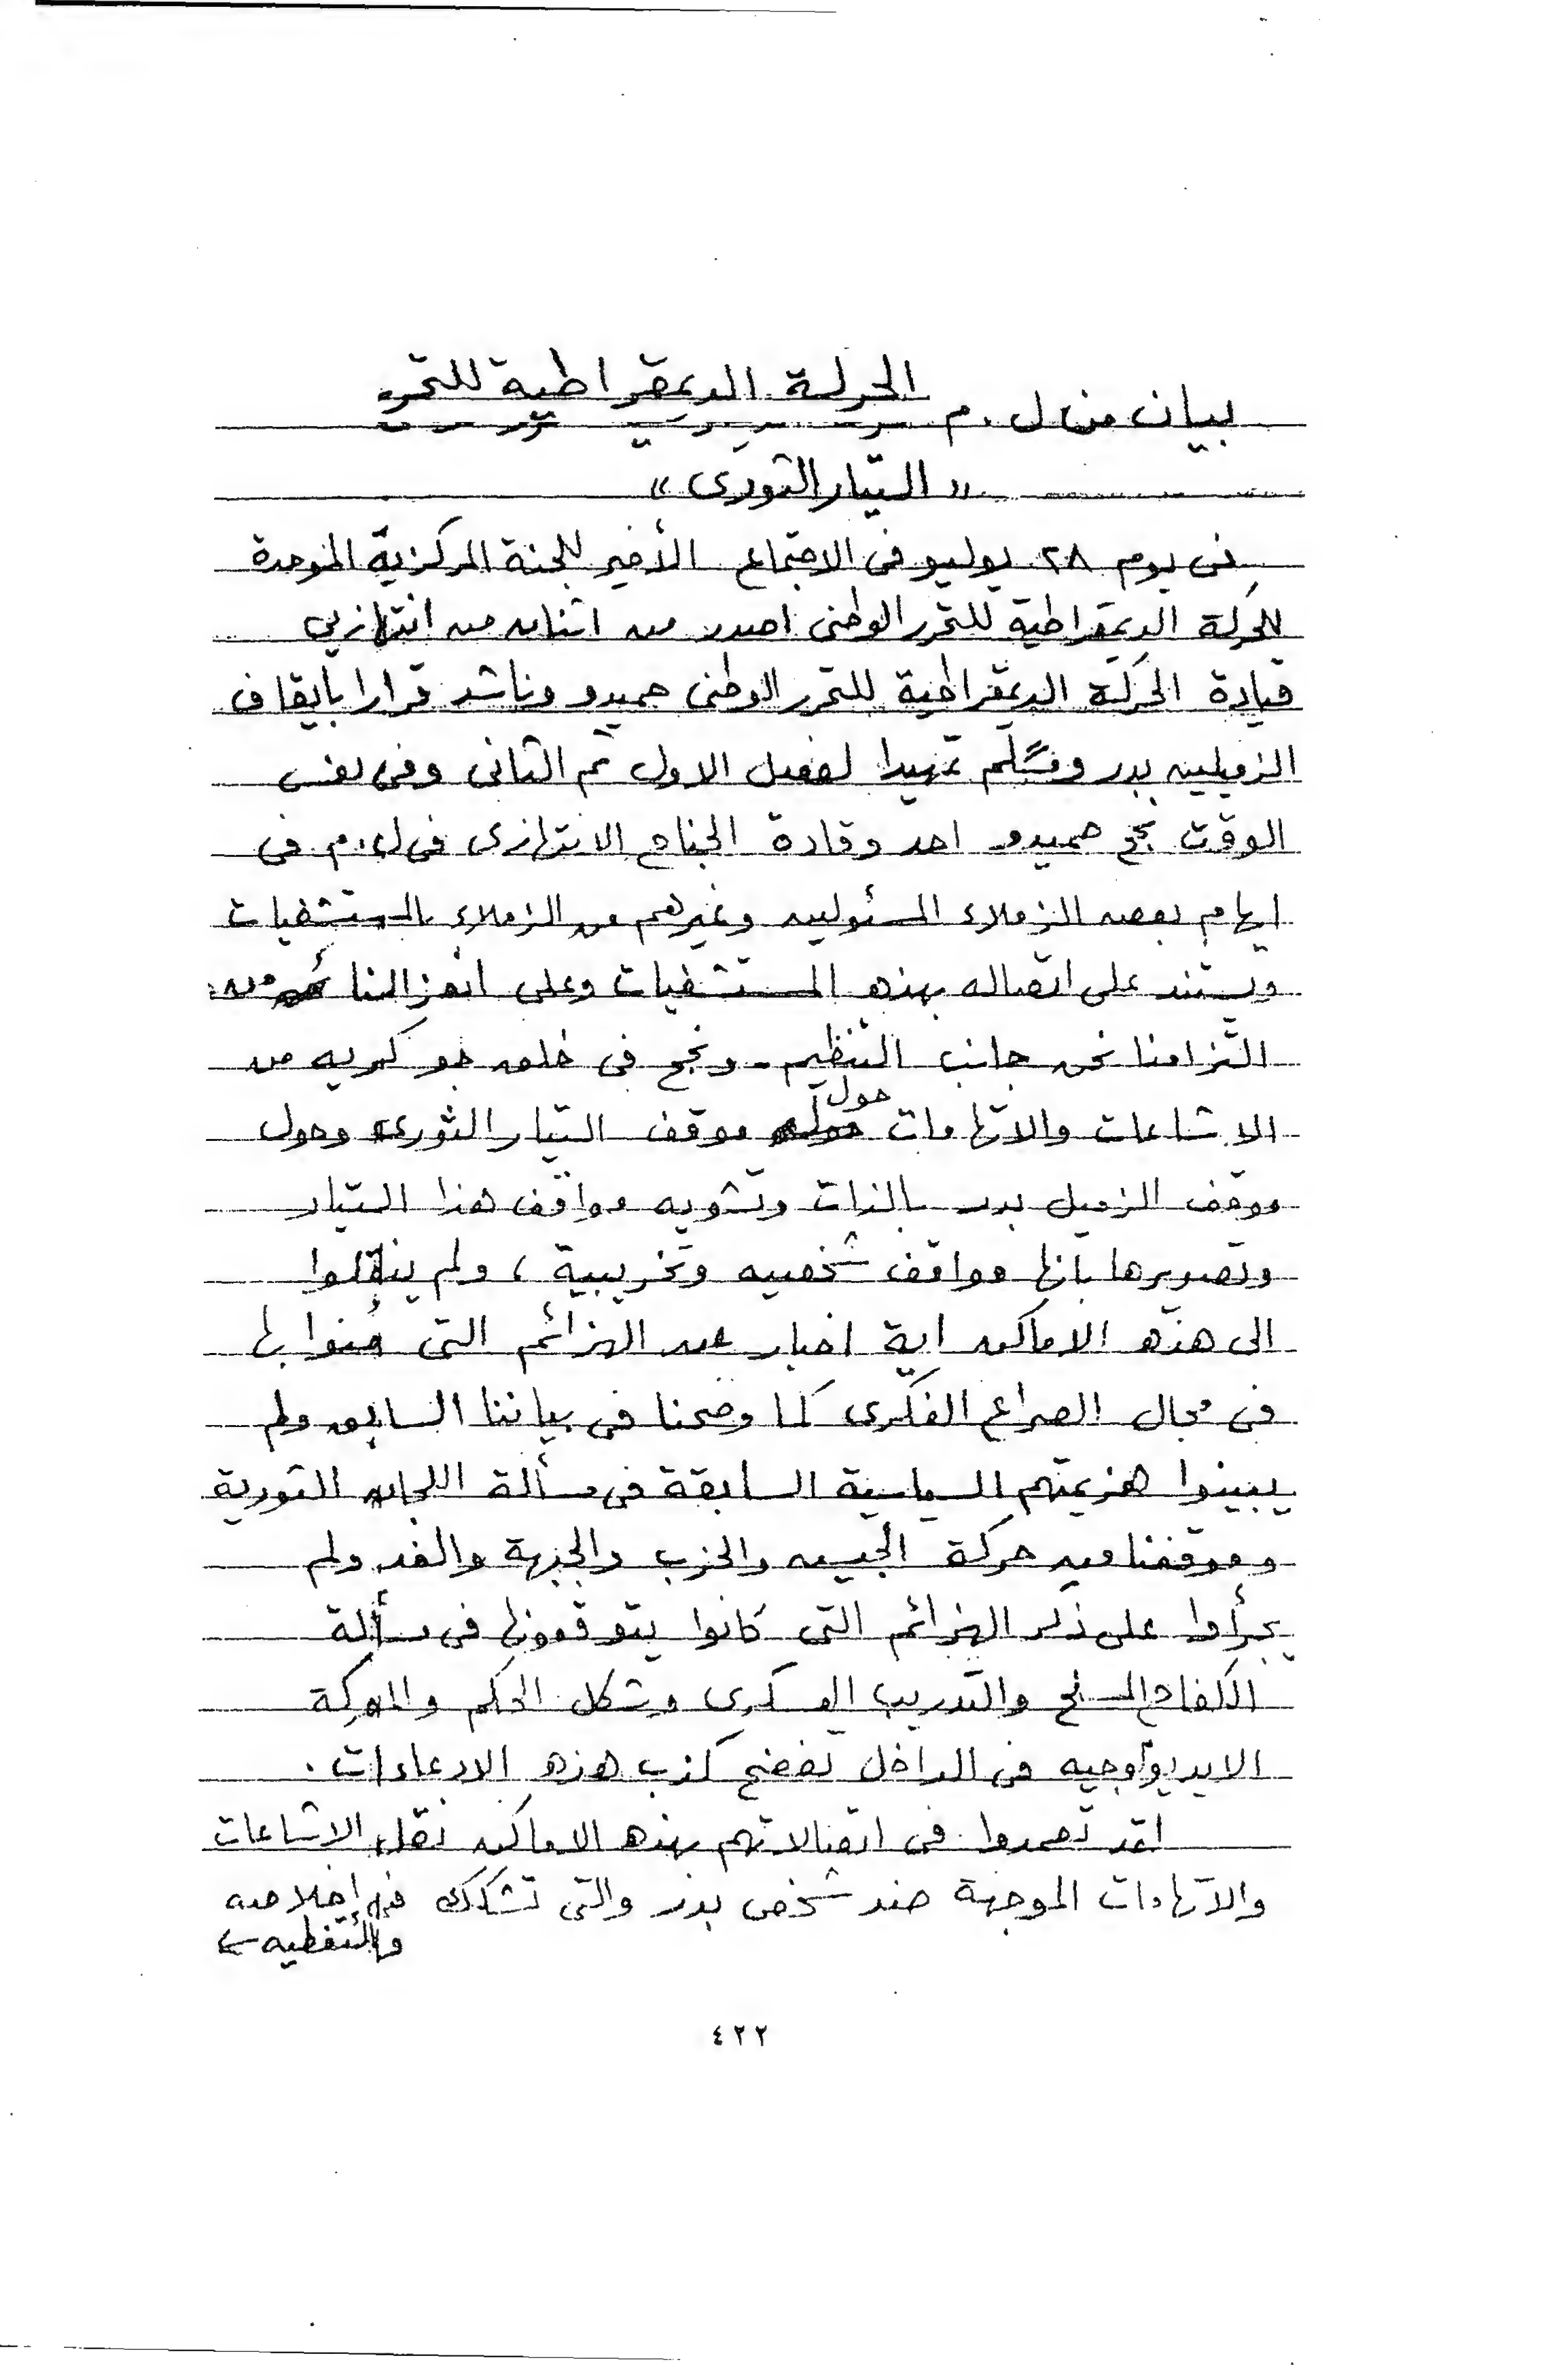 بيان من ل . م الحركة الديمقراطية للتحرر
« التيار الثورى »
فى يوم ٢٨ يوليو فى الاجتماع الأخير للجنة المركزية الموحدة
للحركة الديمقراطية للتحرر الوطنى اصدر من اثنان من انتهازيي
قيادة الحركة الديمقراطية للتحرر الوطنى حميدو وناشد قرارا بأيقاف
الزميلين بدر ومسلم تمهيدا لفصل الاول ثم الثانى وفى نفس
الوقت نجح حميدو احد وقادة الجناح الانتهازى فى ل . م فى
ايهام بعض الزملاء المسئولين وغيرهم من الزملاء بالمستشفيات
ويستند على اتصاله بهذه المستشفيات وعلى انعزالنا من
التزامنا نحن جانب التنظيم - ونجح فى خلق جو كريه من
الاشاعات والاتهامات حول موقف التيار الثورى وحول
موقف الزميل بدر بالذات وتشويه مواقف هذا التيار
وتصويرها بانها مواقف شخصيه وتخريبية ، ولم ينقلوا
الى هذه الاماكن اية اخبار عن الهزائم التى مُنوا بها
فى مجال الصراع الفكرى كما وضحنا فى بياننا السابق ولم
يبينوا هزيمتهم السياسية السابقة فى مسألة اللجان الثورية
وموقفنا من حركة الجيش والحزب والجبهة والغد ولم
يجرأوا على ذكر الهزائم التى كانوا يتوقعونها فى مسألة
الكفاح المسلح والتدريب العسكرى وشكل الحكم والمعركة
الايديولوجيه فى الداخل تفضح كذب هذه الادعاءات .
لقد تعمدوا فى اتصالاتهم بهذه الاماكن نقل الاشاعات
والاتهامات الموجهة ضد شخص بدر والتى تشكك فى اخلاصه
والتغطيه
٤٢٢